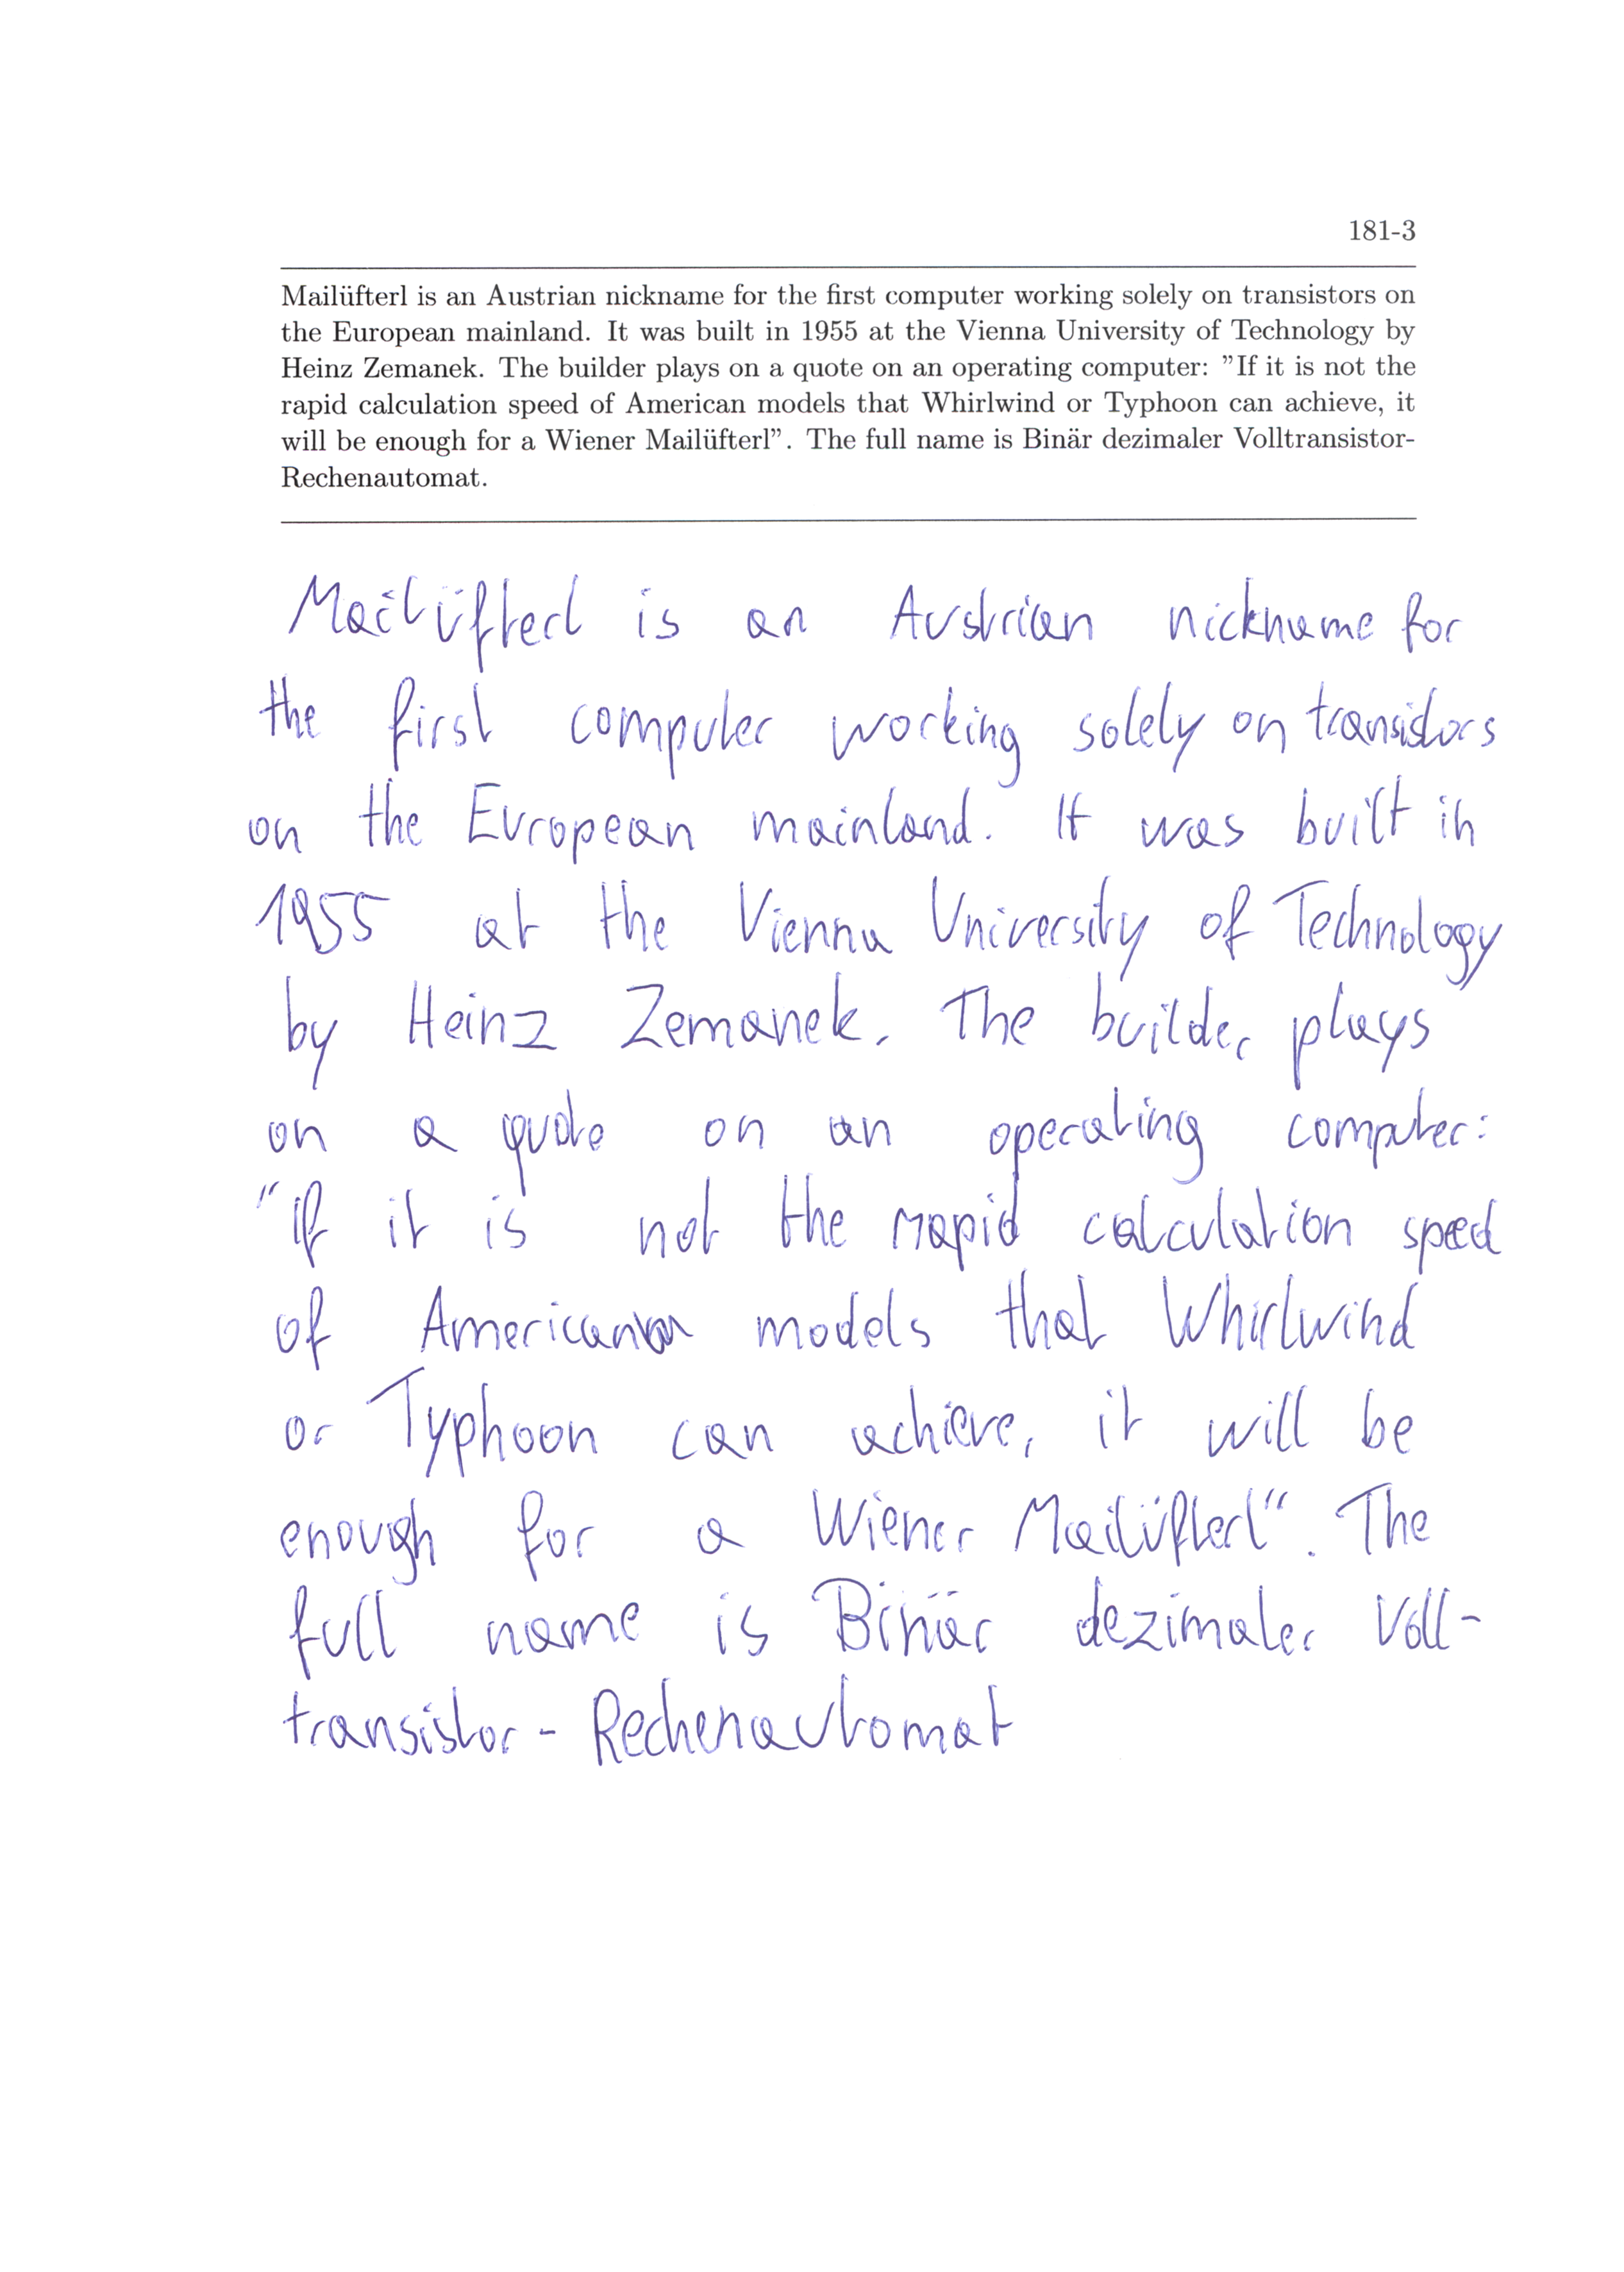 181-3
Mailüfterl is an Austrian nickname for the first computer working solely on transistors on
the European mainland. It was built in 1955 at the Vienna University of Technology by
Heinz Zemanek. The builder plays on a quote on an operating computer: ”If it is not the
rapid calculation speed of American models that Whirlwind or Typhoon can achieve, it
will be enough for a Wiener Mailüfterl”. The full name is Binär dezimaler Volltransistor-
Rechenautomat.
Mailüfterl is an Austrian nickname for
the first computer working solely on transistors
on the European mainland. It was built in
1955 at the Vienna University of Technology
by Heinz Zemanek. The builder plays
on a quote on an operating computer:
"If it is not the rapid calculation speed
of American models that Whirlwind
or Typhoon can achieve, it will be
enough for a Wiener Mailüfterl“. The
full name is Binär dezimaler Voll-
transistor-Rechenautomat